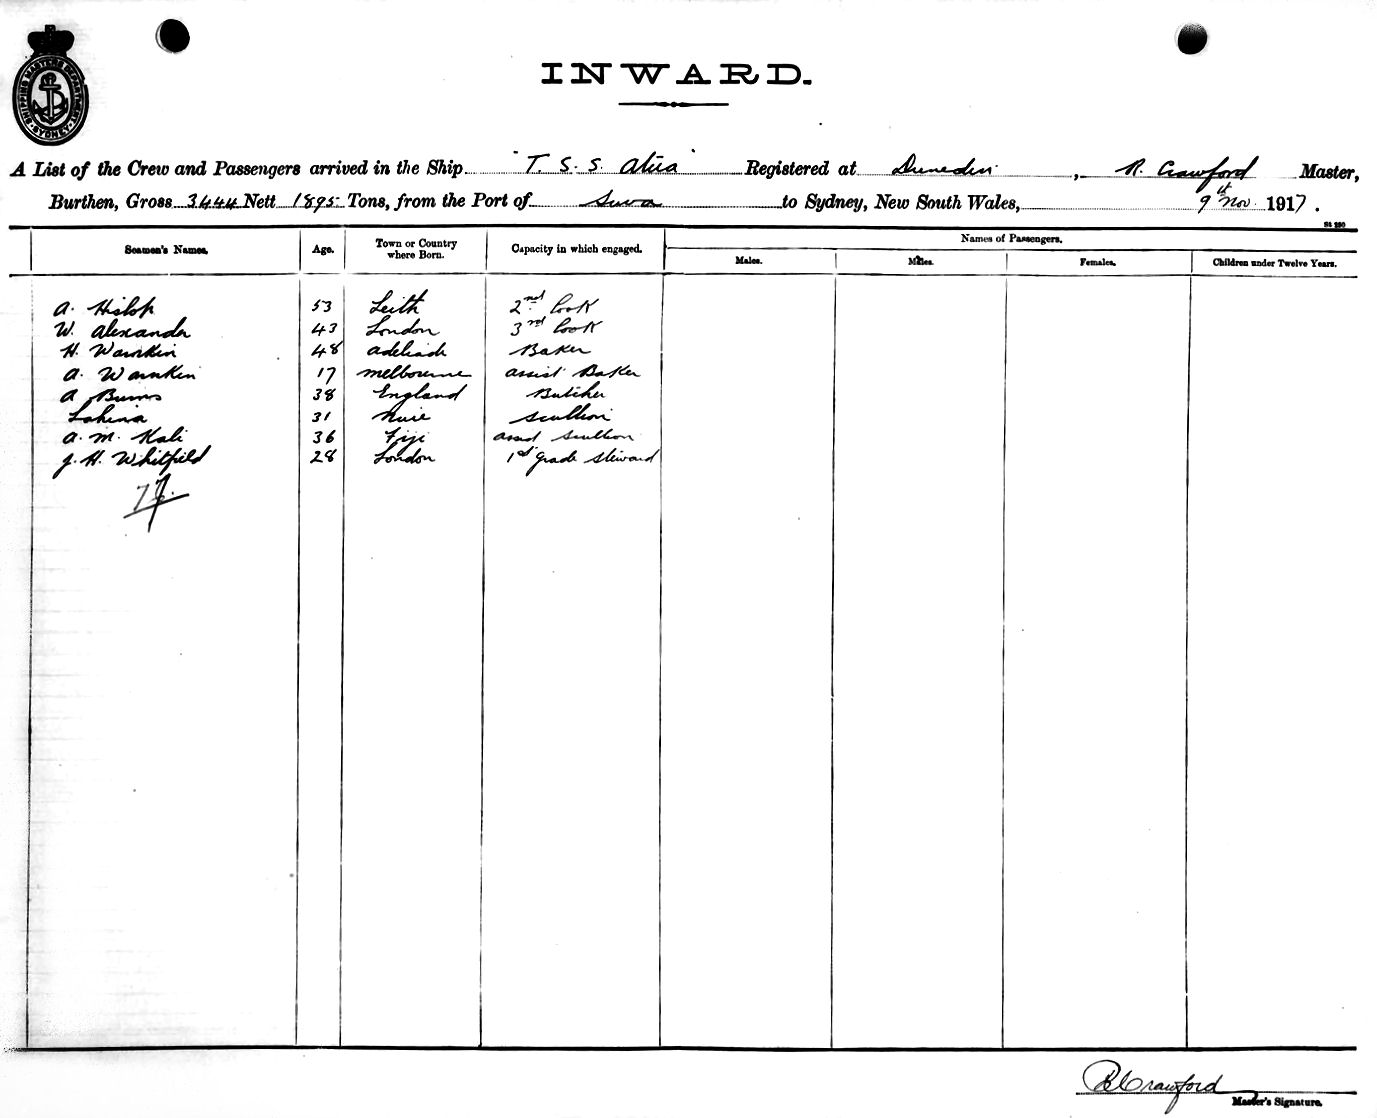 SHIPPING MASTERS DEPARTMENT SYDNEY
INWARD.
A List of the Crew and Passengers arrived in the Ship "T. S. S. Atua" Registered at Dunedin, R. Crawford Master,
Burthen, Gross 3444 Nett 1895 Tons, from the Port of Suva to Sydney, New South Wales, 9th Nov. 1917.
Seamen's Names. Age. Town or Country where Born. Capacity in which engaged. Names of Passengers.
Males. Males. Females. Children under Twelve Years.
A. Hislop 53 Leith 2nd Cook
W. Alexander 43 London 3rd Cook
H. Warnkin 48 Adelaide Baker
A. Warnken 17 Melbourne assist Baker
A Burns 38 England Butcher
Lahina 31 Niue Scullion
A. M. Kali 36 Fiji assist Scullion
J. H. Whitfield 28 London 1st grade Steward
R Crawford
Master's Signature.